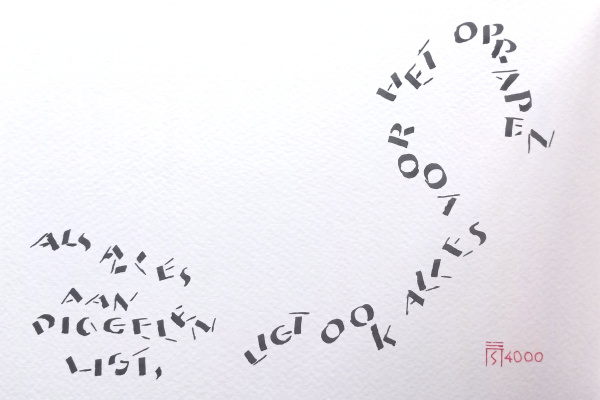 ALS ALLES
AAN
DIGGELEN
LIGT,
LIGT OOK ALLES VOOR HET OPRAPEN
4000